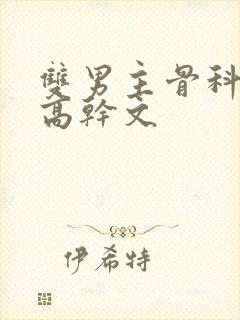 雙男主骨科
高幹文
伊希特